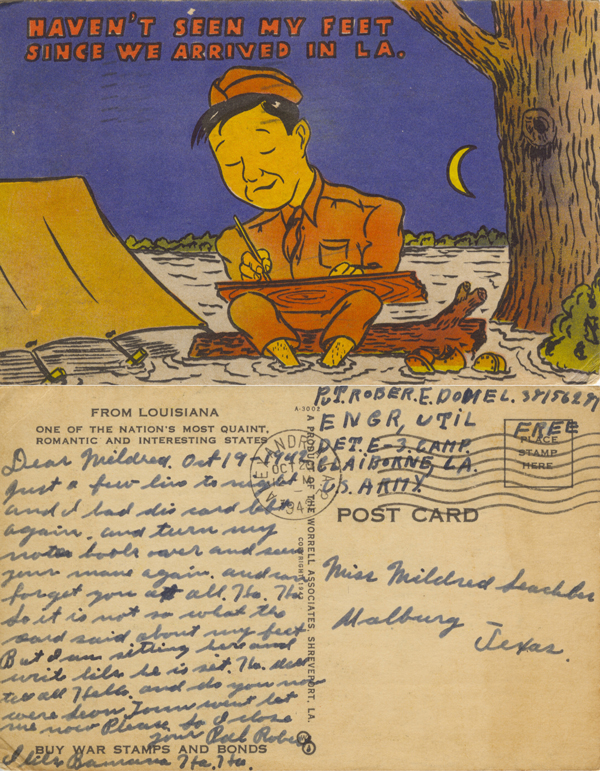 HAVEN'T SEEN MY FEET
SINCE WE ARRIVED IN LA.
FROM LOUISIANA
ONE OF THE NATION'S MOST QUAINT,
ROMANTIC AND INTERESTING STATES
Dear Mildred. Oct 19-1942
Just a few lins to night
and I had dis card left
again. and turn my
note book over and seen
your mane again. and can
forget you at all. Ha. Ha.
So it is not so what the
card said about my feet.
But I am sitting here and
writ like he is set. Ha.
tell all Hello. and do you
me now Please. So I close
your Pal Robert
I like Banana Ha. Ha.
BUY WAR STAMPS AND BONDS
A-3002
A PRODUCT OF THE WORRELL ASSOCIATES, SHREVEPORT, LA.
COPYRIGHT 1942
OCT 2
PVT. ROBER. E. DOMEL.
ENGR, UTIL
DET. E-3. CAMP.
CLAIBORNE, LA.
U.S. ARMY
FREE
PLACE
STAMP
HERE
POST CARD
Miss Mildred
Malburg
Texas.